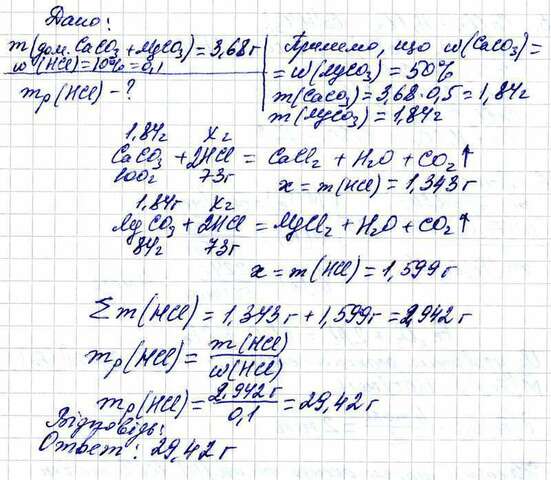 Дано:
m(дом. CaCO₃ + MgCO₃) = 3,68 г
w(HCl) = 10% = 0,1
mр(HCl) - ?
Приймемо, що w(CaCO₃) =
= w(MgCO₃) = 50%
m(CaCO₃) = 3,68·0,5 = 1,84г
m(MgCO₃) = 1,84г
1,84г xг
CaCO₃ + 2HCl = CaCl₂ + H₂O + CO₂↑
100г 73г
x = m(HCl) = 1,343г
1,84г xг
MgCO₃ + 2HCl = MgCl₂ + H₂O + CO₂↑
84г 73г
x = m(HCl) = 1,599г
Σm(HCl) = 1,343г + 1,599г = 2,942г
mр(HCl) = m(HCl)/w(HCl)
mр(HCl) = 2,942г/0,1 = 29,42г
Відповідь:
Ответ: 29,42г